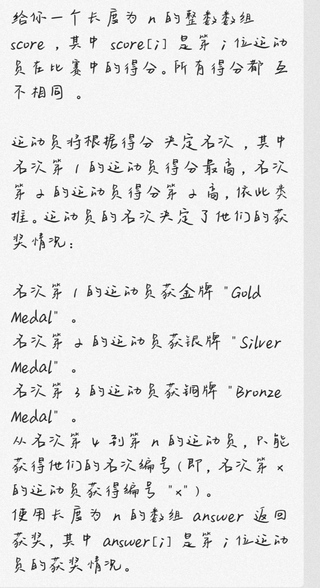 给你一个长度为 n 的整数数组
score ，其中 score[i] 是第 i 位运动
员在比赛中的得分。所有得分都 互
不相同 。
运动员将根据得分 决定名次 ，其中
名次第 1 的运动员得分最高，名次
第 2 的运动员得分第 2 高，依此类
推。运动员的名次决定了他们的获
奖情况：
名次第 1 的运动员获金牌 "Gold
Medal" 。
名次第 2 的运动员获银牌 "Silver
Medal" 。
名次第 3 的运动员获铜牌 "Bronze
Medal" 。
从名次第 4 到第 n 的运动员，只能
获得他们的名次编号（即，名次第 x
的运动员获得编号 "x"）。
使用长度为 n 的数组 answer 返回
获奖，其中 answer[i] 是第 i 位运动
员的获奖情况。